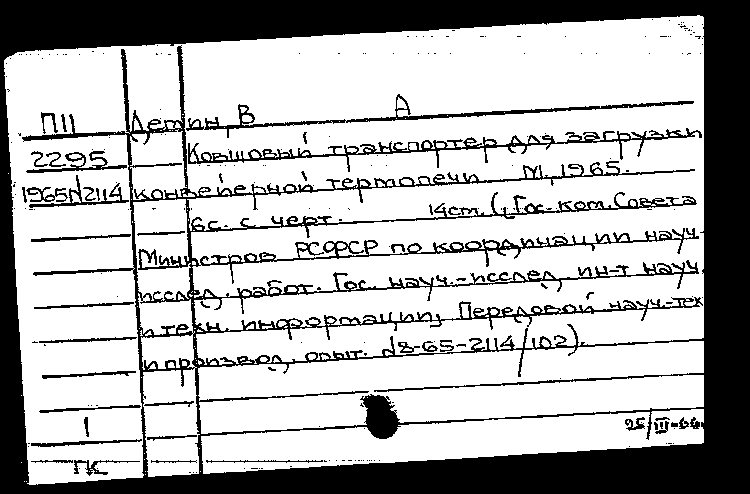 П11 Детин, В А
2295 Ковшовый транспортер для загрузки
1965/2114 конвейерной термопечи М., 1965.
6с. с черт. 14см. (Гос. ком. Совета
Министров РСФСР по координации науч.-
исслед. работ. Гос. науч.-исслед. ин-т науч.
и техн. информации, Передовой науч.-тех
и производ. опыт. №8-65-2114/102).
1
25/III-66
ГК